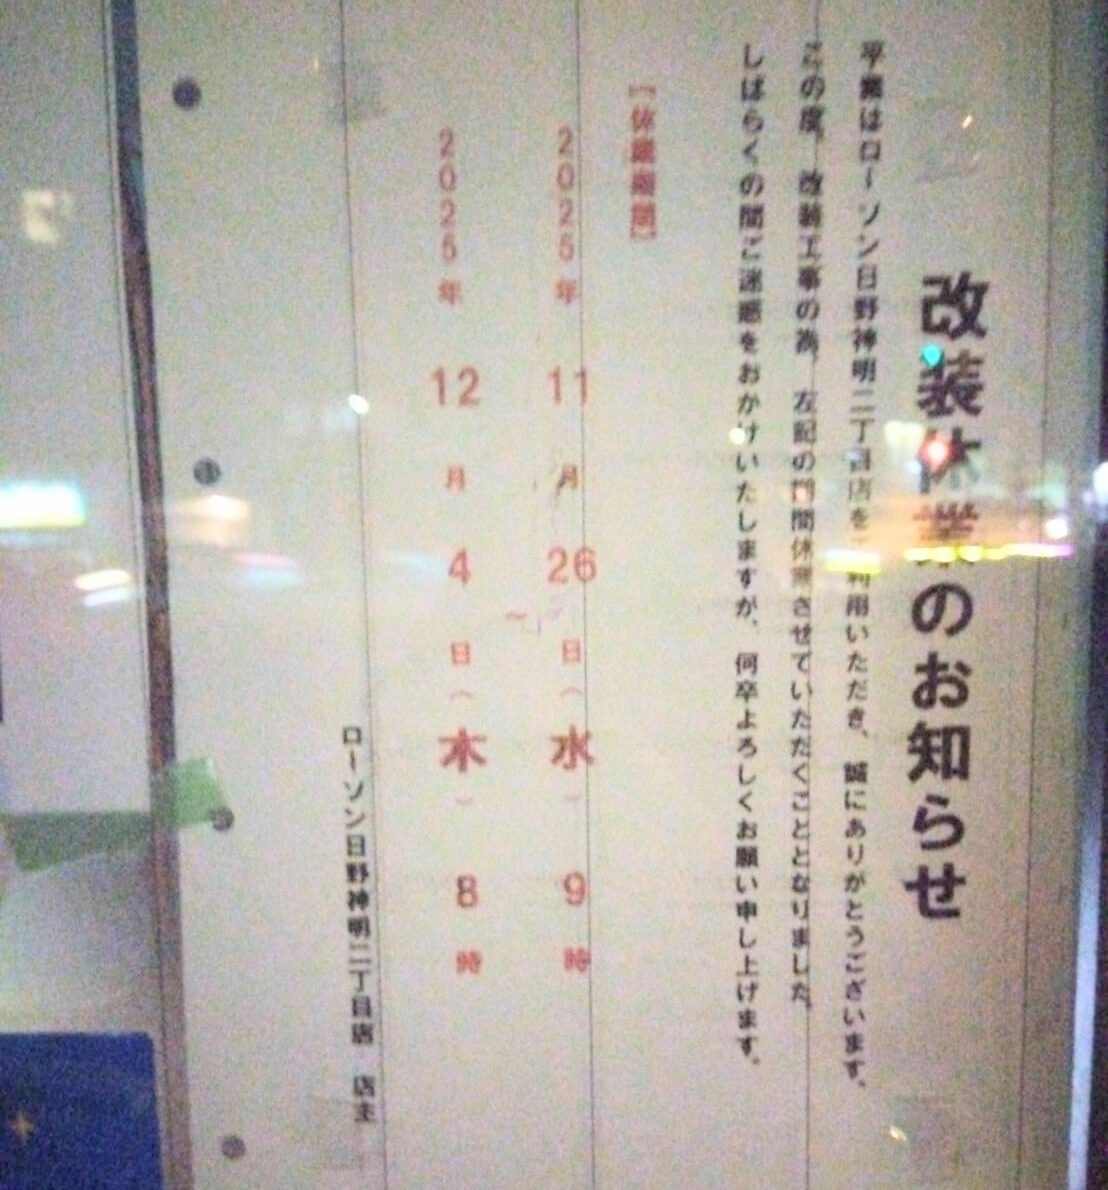 改装休業のお知らせ
平素はローソン日野神明二丁目店をご利用いただき、誠にありがとうございます。
この度、改装工事の為、左記の期間休業させていただくこととなりました。
しばらくの間ご迷惑をおかけいたしますが、何卒よろしくお願い申し上げます。
【休業期間】
2025年11月26日(水)9時
~
2025年12月4日(木)8時
ローソン日野神明二丁目店 店主